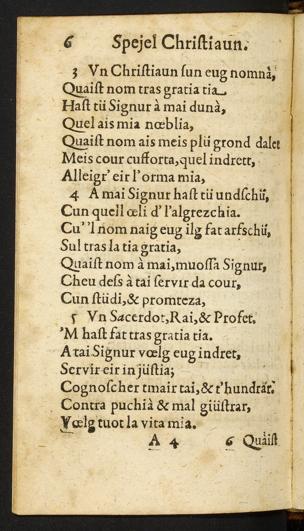 6 Spejel Chriſtiaun.
3 Vn Chriſtiaun ſun eug nomnà,
Quaiſt nom tras gratia tia
Haſt tü Signur à mai dunà,
Quel ais mia nœblia,
Quaiſt nom ais meis plü grond dalet
Meis cour cufforta, quel indrett,
Alleigr' eir l'orma mia,
4 A mai Signur haſt tü undſchü,
Cun quell œli d' l'algrezchia.
Cu' 'l nom naig eug ilg fat arfſchü,
Sul tras la tia gratia,
Quaiſt nom à mai, muoſſa Signur,
Cheu deſs à tai ſervir da cour,
Cun ſtüdi, & promteza,
5 Vn Sacerdot, Rai, & Profet.
'M haſt fat tras gratia tia.
A tai Signur vœlg eug indret,
Servir eir in jüſtia;
Cognoſcher tmair tai, & t'hundrar.
Contra puchià & mal giüſtrar,
Vœlg tuot la vita mia.
A 4 6 Quaiſt